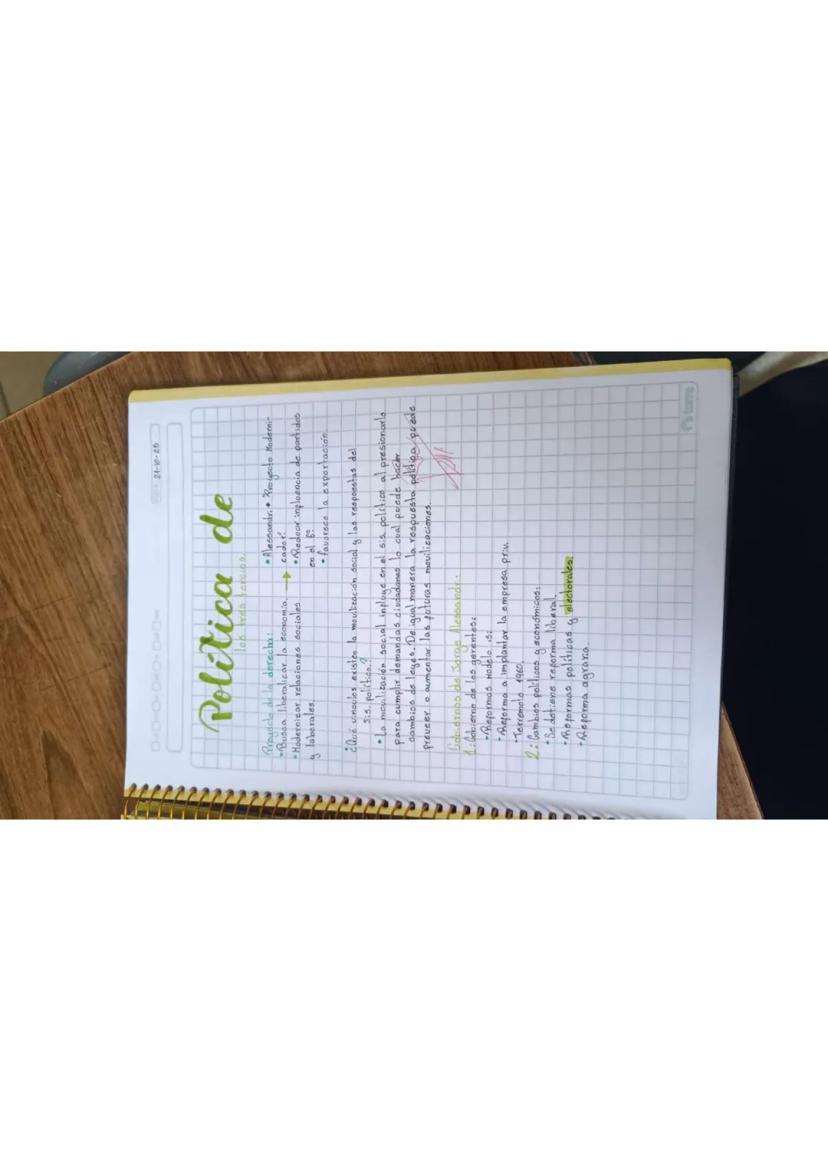 21-10-25
Política de
los tres tercios
Proyecto de la derecha:
• Busca liberalizar la economía. →
• Modernizar relaciones sociales
y laborales.
• Alessandri • Proyecto Moderni-
zador.
• Reducir influencia de partidos
en el G°
• favorece la exportación.
¿Qué vínculos existen la movilización social y las respuestas del
sis. político?
• La movilización social influye en el sis. político al presionarlo
para cumplir demandas ciudadanas lo cual puede hacer
cambios de leyes. De igual manera la respuesta política puede
preveer o aumentar las futuras movilizaciones.
Gobiernos de Jorge Alessandri.
1: Gobierno de los gerentes:
• Reformas modelo isi
• Reforma a implantar la empresa priv.
• Terremoto 1960.
2: Cambios políticos y económicos:
• Se detiene reforma liberal.
• Reformas políticas y electorales.
• Reforma agraria.
torre